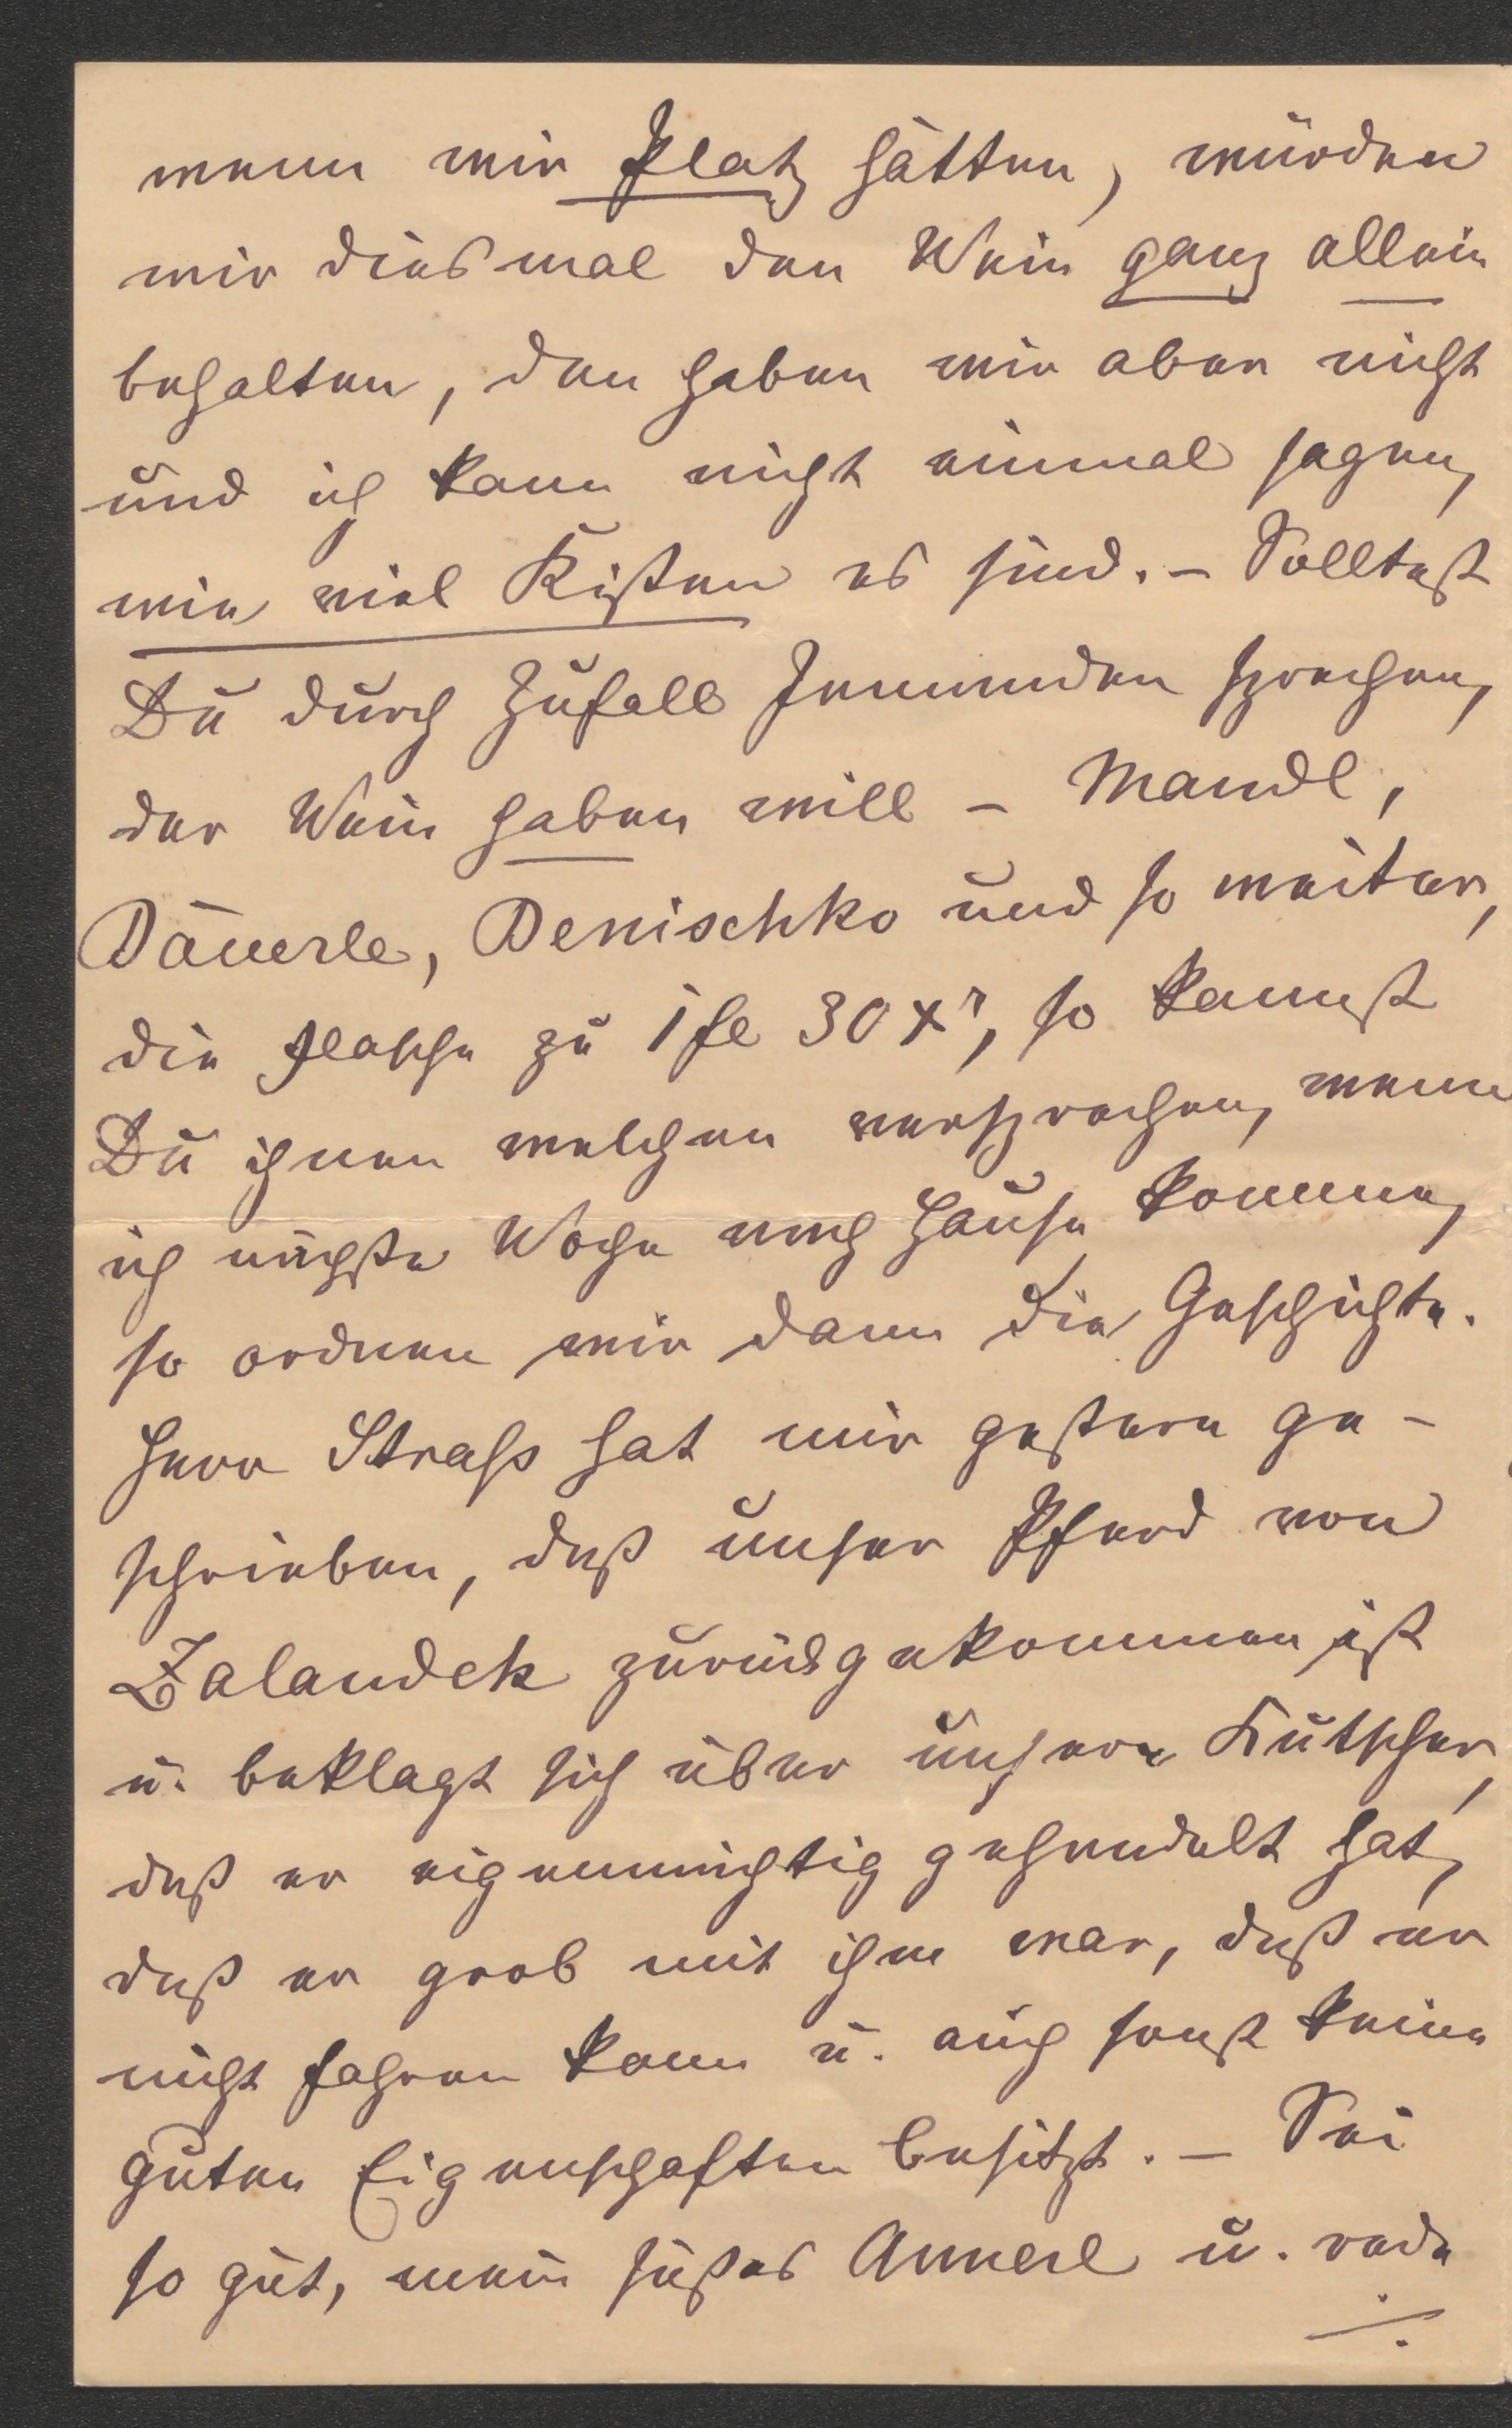 wenn wir Platz hätten, würden
wir diesmal den Wein ganz allein
behalten, den haben wir aber nicht
und ich kann nicht einmal sagen,
wie viel Kisten es sind. – Solltest
Du durch Zufall Jemanden sprechen,
der Wein haben will – Mandl,
Däuerle, Denischko und so weiter,
die Flasche zu 1 fl 30 xr, so kannst
Du ihnen welchen versprechen, wenn
ich nächste Woche nach Hause komme,
so ordnen wir dann die Geschichte.
Herr Strass hat mir gestern ge-
schrieben, daß unser Pferd von
Zalandek zurückgekommen ist
u. beklagt sich über unsern Kutscher,
daß er eigenmächtig gehandelt hat,
daß er grob mit ihm war, daß er
nicht fahren kann u. auch sonst keine
guten Eigenschaften besitzt. – Sei
so gut, mein süßes Annerl u. rede
./.